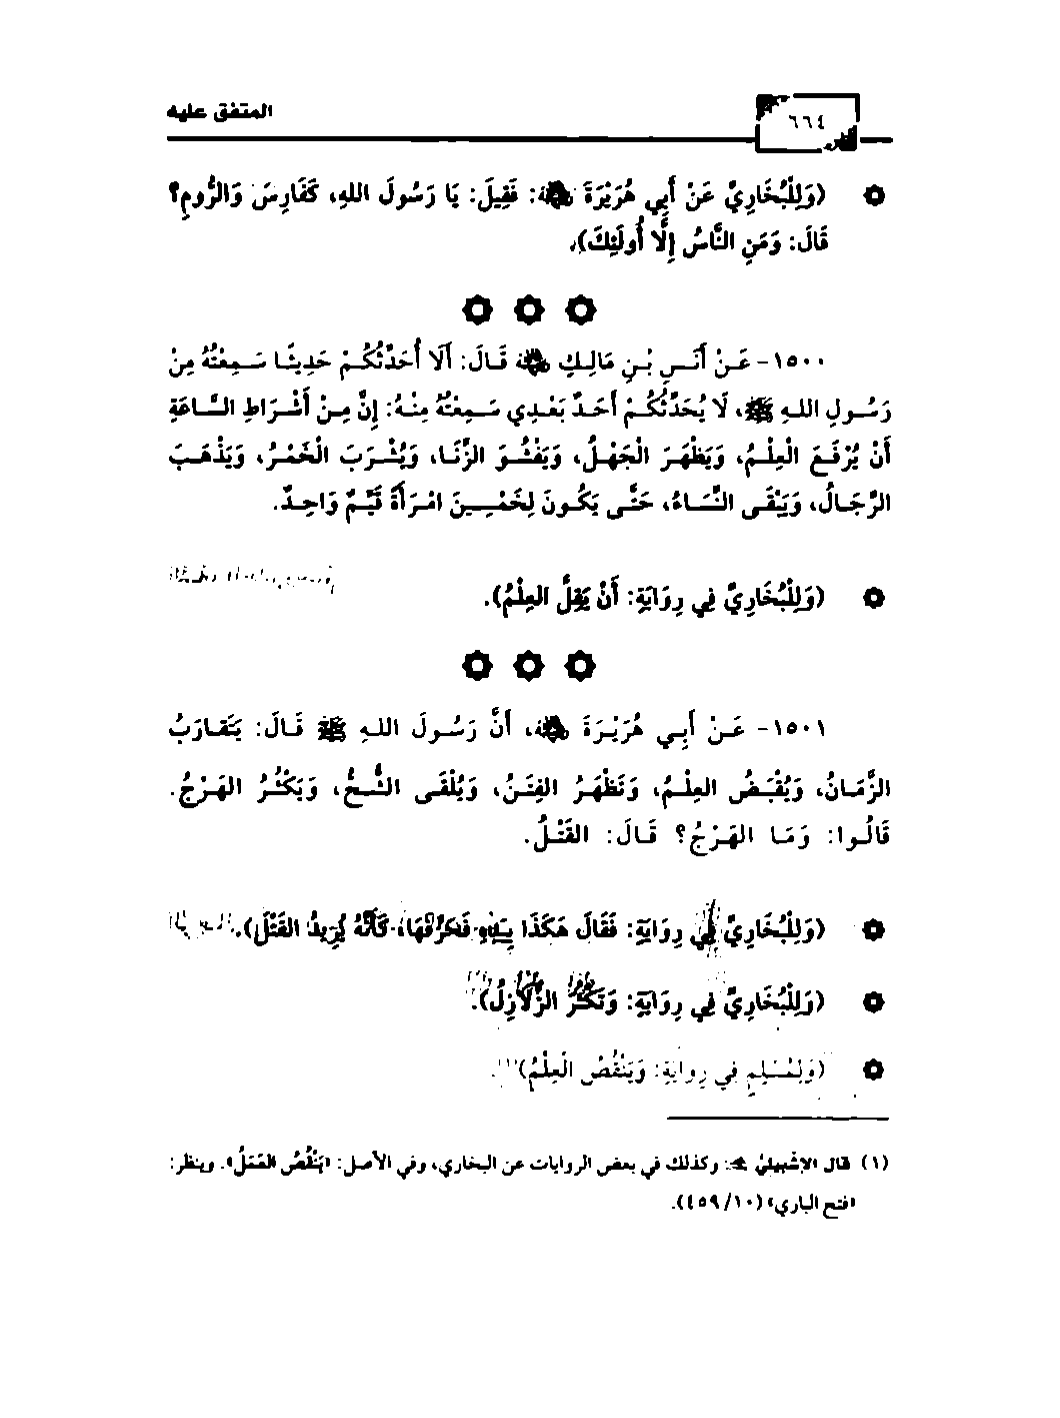 المتفق عليه
٦٦٤
(وَلِلْبُخَارِيِّ عَنْ أَبِي هُرَيْرَةَ ﷺ: فَقِيلَ: يَا رَسُولَ اللهِ، كَفَارِسَ وَالرُّومِ؟
قَالَ: وَمَنِ النَّاسُ إِلَّا أُولَئِكَ).
١٥٠٠- عَنْ أَنَسِ بْنِ مَالِكٍ ﵁ قَالَ: أَلَا أُحَدِّثُكُمْ حَدِيثًا سَمِعْتُهُ مِنْ
رَسُولِ اللهِ ﷺ، لَا يُحَدِّثُكُمْ أَحَدٌ بَعْدِي سَمِعْتُهُ مِنْهُ: إِنَّ مِنْ أَشْرَاطِ السَّاعَةِ
أَنْ يُرْفَعَ الْعِلْمُ، وَيَظْهَرَ الْجَهْلُ، وَيَفْشُوَ الزِّنَا، وَيُشْرَبَ الْخَمْرُ، وَيَذْهَبَ
الرِّجَالُ، وَيَبْقَى النِّسَاءُ، حَتَّى يَكُونَ لِخَمْسِينَ امْرَأَةً قَيِّمٌ وَاحِدٌ.
(وَلِلْبُخَارِيِّ فِي رِوَايَةٍ: أَنْ يَقِلَّ العِلْمُ).
١٥٠١- عَنْ أَبِي هُرَيْرَةَ ﵁، أَنَّ رَسُولَ اللهِ ﷺ قَالَ: يَتَقَارَبُ
الزَّمَانُ، وَيُقْبَضُ العِلْمُ، وَتَظْهَرُ الفِتَنُ، وَيُلْقَى الشُّحُّ، وَيَكْثُرُ الهَرْجُ.
قَالُوا: وَمَا الهَرْجُ؟ قَالَ: القَتْلُ.
(وَلِلْبُخَارِيِّ فِي رِوَايَةٍ: فَقَالَ هَكَذَا بِيَدِهِ فَحَرَّفَهَا، كَأَنَّهُ يُرِيدُ القَتْلَ).
(وَلِلْبُخَارِيِّ فِي رِوَايَةٍ: وَتَكْثُرَ الزَّلَازِلُ).
(وَلِمُسْلِمٍ فِي رِوَايَةٍ: وَيَنْقُصُ الْعِلْمُ)(١).
(١) قال الإشْبِيليُّ ﵀: وكذلك في بعض الروايات عن البخاري، وفي الأصل: «يَنْقُصُ العَمَلُ». وينظر:
«فتح الباري» (١٠/ ٤٥٩).